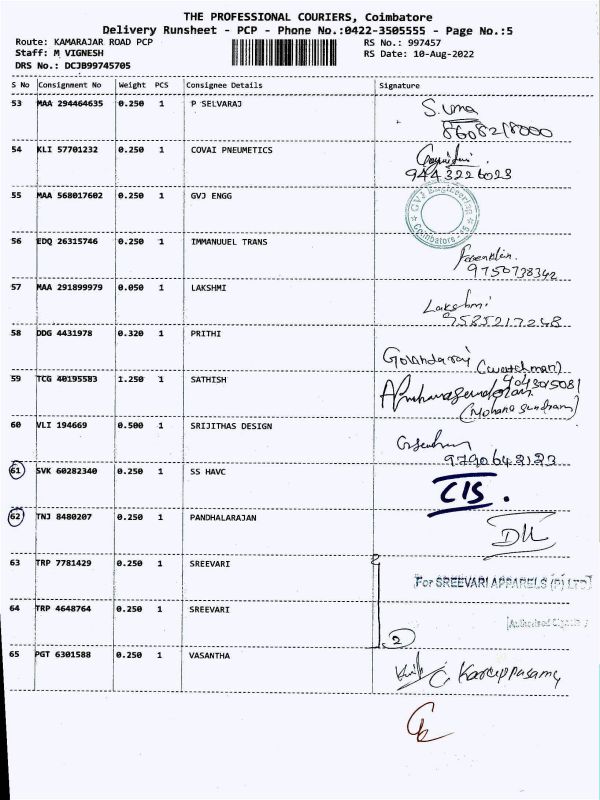 THE PROFESSIONAL COURIERS, Coimbatore
Delivery Runsheet - PCP - Phone No.:0422-3505555 - Page No.:5
Route: KAMARAJAR ROAD PCP
RS No.: 997457
Staff: M VIGNESH
RS Date: 10-Aug-2022
DRS No.: DCJB99745705
S No Consignment No Weight PCS Consignee Details Signature
53 MAA 294464635 0.250 1 P SELVARAJ S. uma
54 KLI 57701232 0.250 1 COVAI PNEUMETICS
9443226023
55 MAA 568017602 0.250 1 GVJ ENGG
GVJ Engineering
Coimbatore
56 EDQ 26315746 0.250 1 IMMANUUEL TRANS
9750738342
57 MAA 291899979 0.050 1 LAKSHMI Lakshmi
9585217248
58 DDG 4431978 0.320 1 PRITHI
(watchman)
59 TCG 40195583 1.250 1 SATHISH
(Mohana Sundram)
60 VLI 194669 0.500 1 SRIJITHAS DESIGN
9790642123
61 SVK 60282340 0.250 1 SS HAVC CIS.
62 TNJ 8480207 0.250 1 PANDHALARAJAN
63 TRP 7781429 0.250 1 SREEVARI For SREEVARI APPARELS (P) LTD
64 TRP 4648764 0.250 1 SREEVARI Authorised Signatory
2
65 PGT 6301588 0.250 1 VASANTHA Karuppasamy